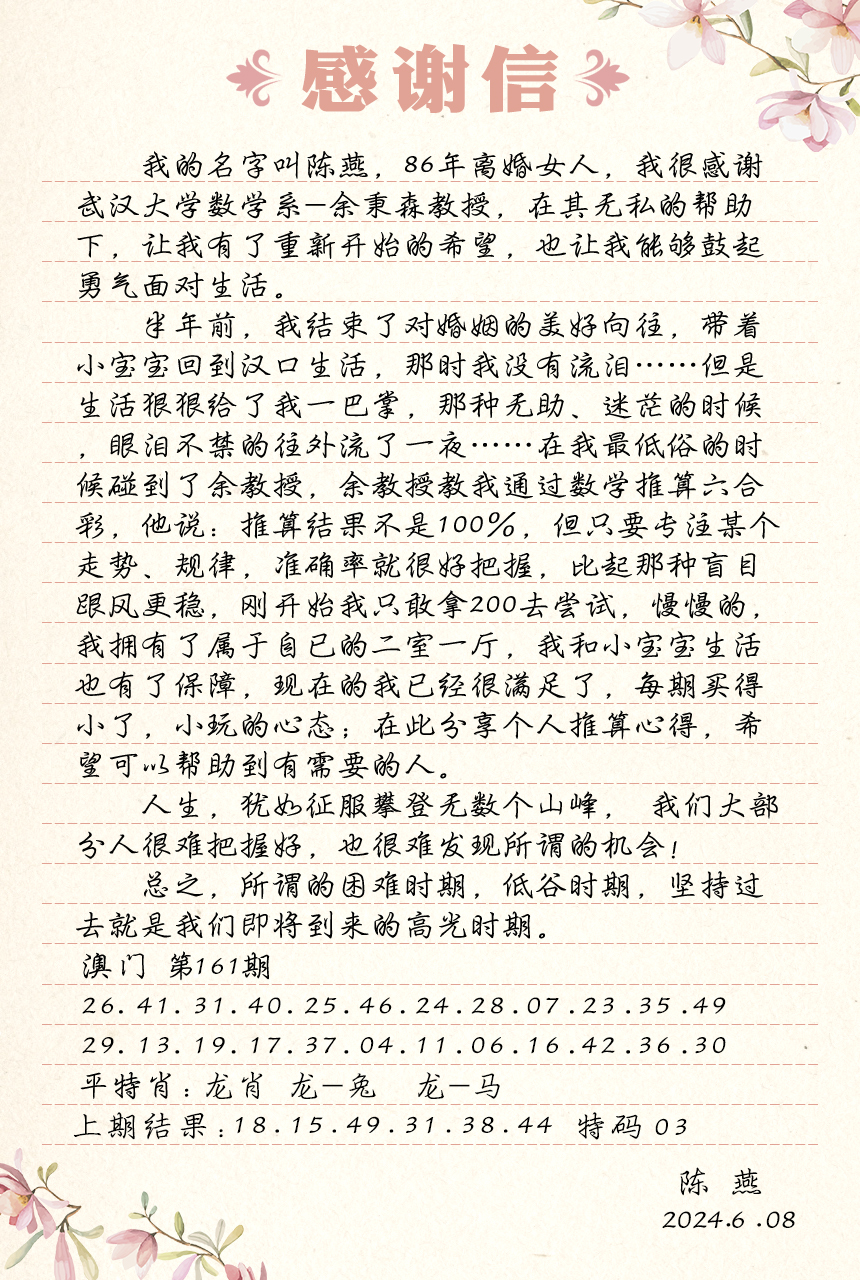 感谢信
我的名字叫陈燕，86年离婚女人，我很感谢
武汉大学数学系—余秉森教授，在其无私的帮助
下，让我有了重新开始的希望，也让我能够鼓起
勇气面对生活。
半年前，我结束了对婚姻的美好向往，带着
小宝宝回到汉口生活，那时我没有流泪……但是
生活狠狠给了我一巴掌，那种无助、迷茫的时候
，眼泪不禁的往外流了一夜……在我最低俗的时
候碰到了余教授，余教授教我通过数学推算六合
彩，他说：推算结果不是100%，但只要专注某个
走势、规律，准确率就很好把握，比起那种盲目
跟风更稳，刚开始我只敢拿200去尝试，慢慢的，
我拥有了属于自已的二室一厅，我和小宝宝生活
也有了保障，现在的我已经很满足了，每期买得
小了，小玩的心态；在此分享个人推算心得，希
望可以帮助到有需要的人。
人生，犹如征服攀登无数个山峰， 我们大部
分人很难把握好，也很难发现所谓的机会！
总之，所谓的困难时期，低谷时期，坚持过
去就是我们即将到来的高光时期。
澳门 第161期
26.41.31.40.25.46.24.28.07.23.35.49
29.13.19.17.37.04.11.06.16.42.36.30
平特肖：龙肖 龙—兔 龙—马
上期结果：18.15.49.31.38.44 特码 03
陈 燕
2024.6.08